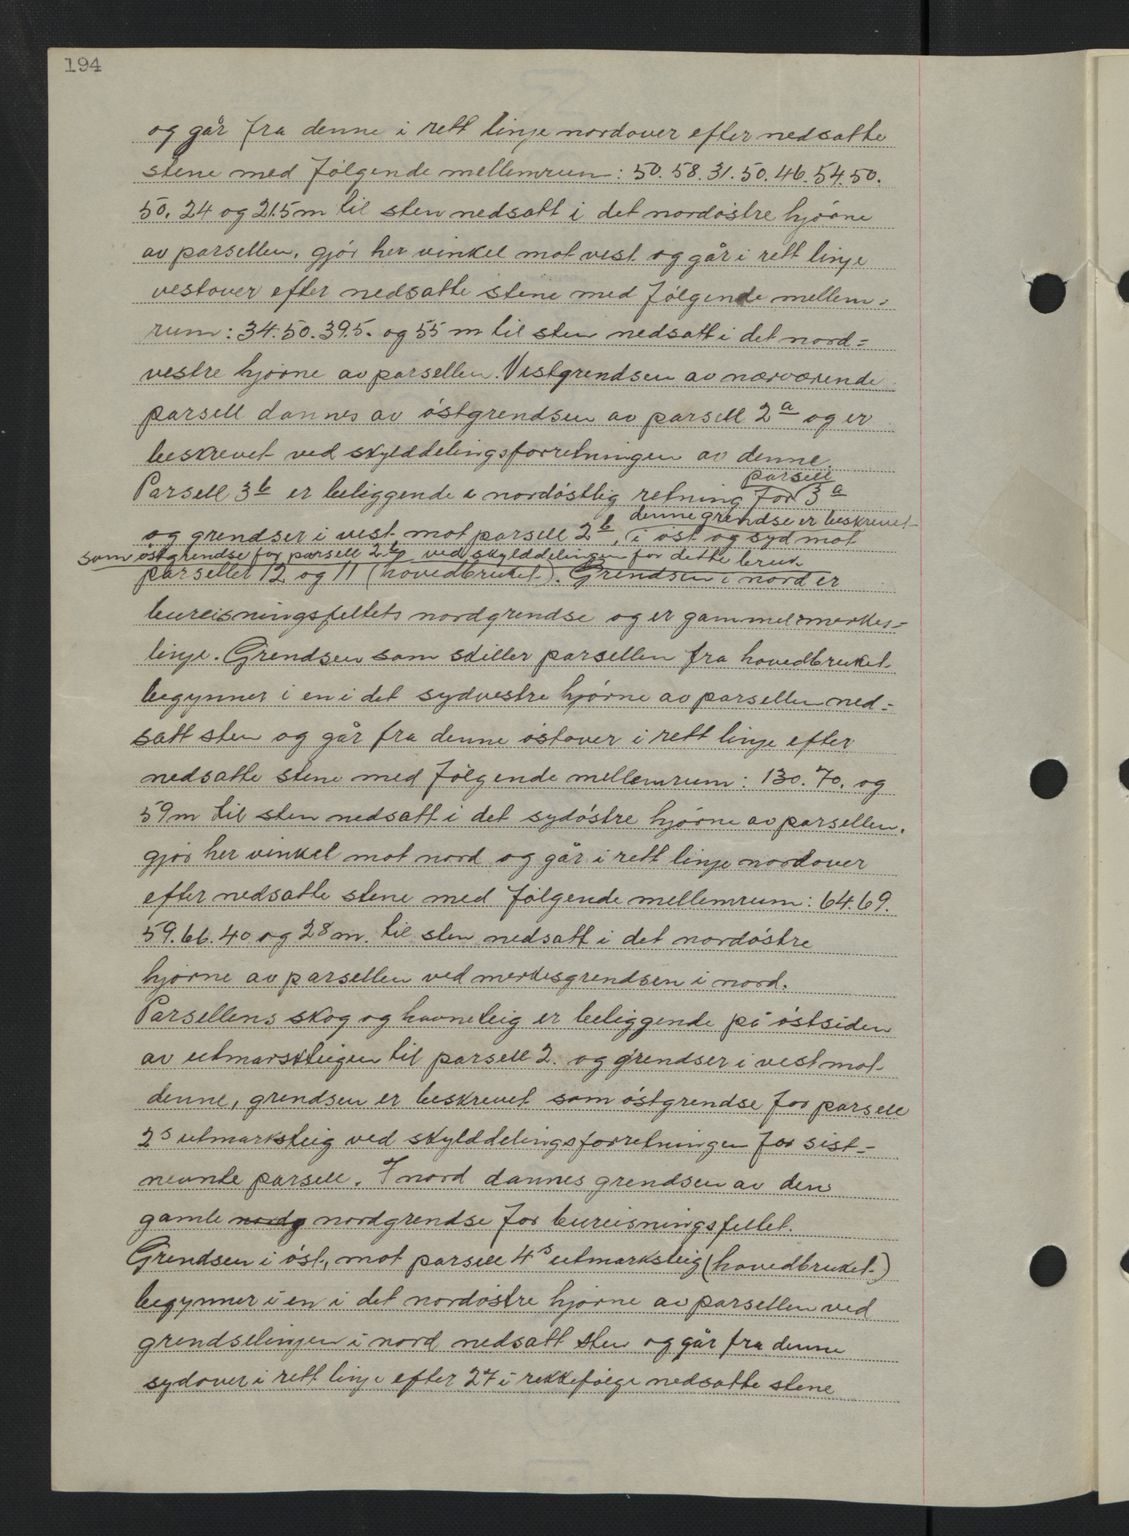 194
og går fra denne i rett linje nordover efter nedsatte
stene med følgende mellemrum: 50. 58. 31. 50. 46. 54. 50.
50, 24 og 21.5 m til sten nedsatt i det nordøstre hjørne
av parsellen, gjør her vinkel mot vest og går i rett linje
vestover efter nedsatte stene med følgende mellem=
rum: 34. 50. 39.5. og 55 m til sten nedsatt i det nord=
vestre hjørne av parsellen. Vestgrendsen av nærværende
parsell dannes av østgrendsen av parsell 2a og er
beskrevet ved skylddelingsforretningen av denne.
parsell
Parsell 3b er beliggende i nordøstlig retning for 3a
denne grendse er beskrevet
og grendser i vest mot parsell 2b, i øst og syd mot
som østgrendse for parsell 2b ved skylddelingen for dette bruk
parseller 12 og 11 (hovedbruket). Grendsen i nord er
bureisningsfeltets nordgrendse og er gammel merkes=
linje. Grendsen som skiller parsellen fra hovedbruket
begynner i en i det sydvestre hjørne av parsellen ned=
satt sten og går fra denne østover i rett linje efter
nedsatte stene med følgende mellemrum: 130. 70. og
59 m til sten nedsatt i det sydøstre hjørne av parsellen,
gjør her vinkel mot nord og går i rett linje nordover
efter nedsatte stene med følgende mellemrum: 64. 69.
59. 66. 40 og 28 m. til sten nedsatt i det nordøstre
hjørne av parsellen ved merkesgrendsen i nord.
Parsellens skog og havneteig er beliggende på østsiden
av utmarsteigen til parsell 2. og grendser i vest mot
denne, grendsen er beskrevet som østgrendse for parsell
2s utmarksteig ved skylddelingsforretningen for sist=
nevnte parsell. I nord dannes grendsen av den
gamle nordg nordgrendse for bureisningsfeltet.
Grendsen i øst, mot parsell 4s utmarksteig (hovedbruket)
begynner i en i det nordøstre hjørne av parsellen ved
grendselinjen i nord nedsatt sten og går fra denne
sydover i rett linje efter 27 i rekkefølge nedsatte stene